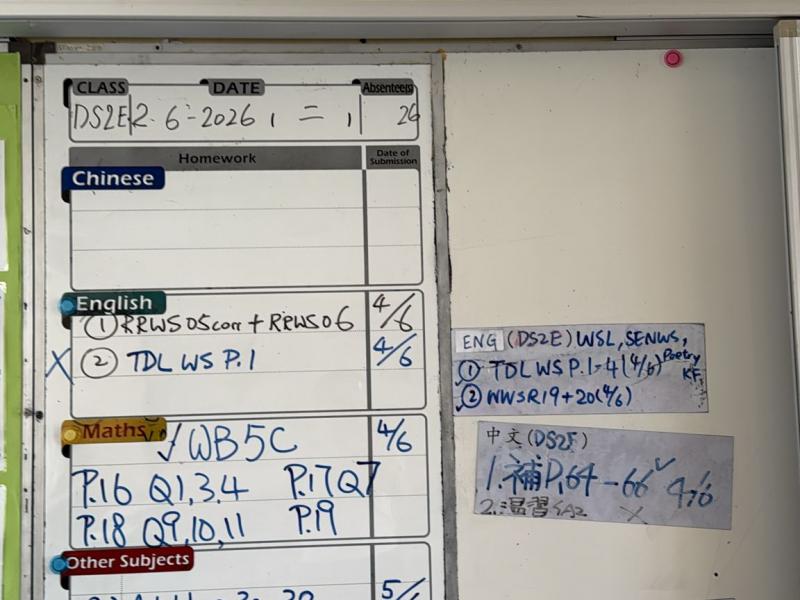 CLASS DATE Absentees
DS2E 2-6-2026, 二, 26
Homework Date of Submission
Chinese
English
① RRWS05corr + RRWS06 4/6
X ② TDL WS P.1 4/6
Maths
✓ WB5C 4/6
P.16 Q1,3,4 P.17 Q7
P.18 Q9,10,11 P.19
Other Subjects
5/
ENG (DS2E) WSL, SENWS,
① TDL WS P.1-4 (4/6) Poetry KF
② WWSR19+20(4/6)
中文(DS2F)
1.補P.64-66 ✓ 4/6
2.溫習 X